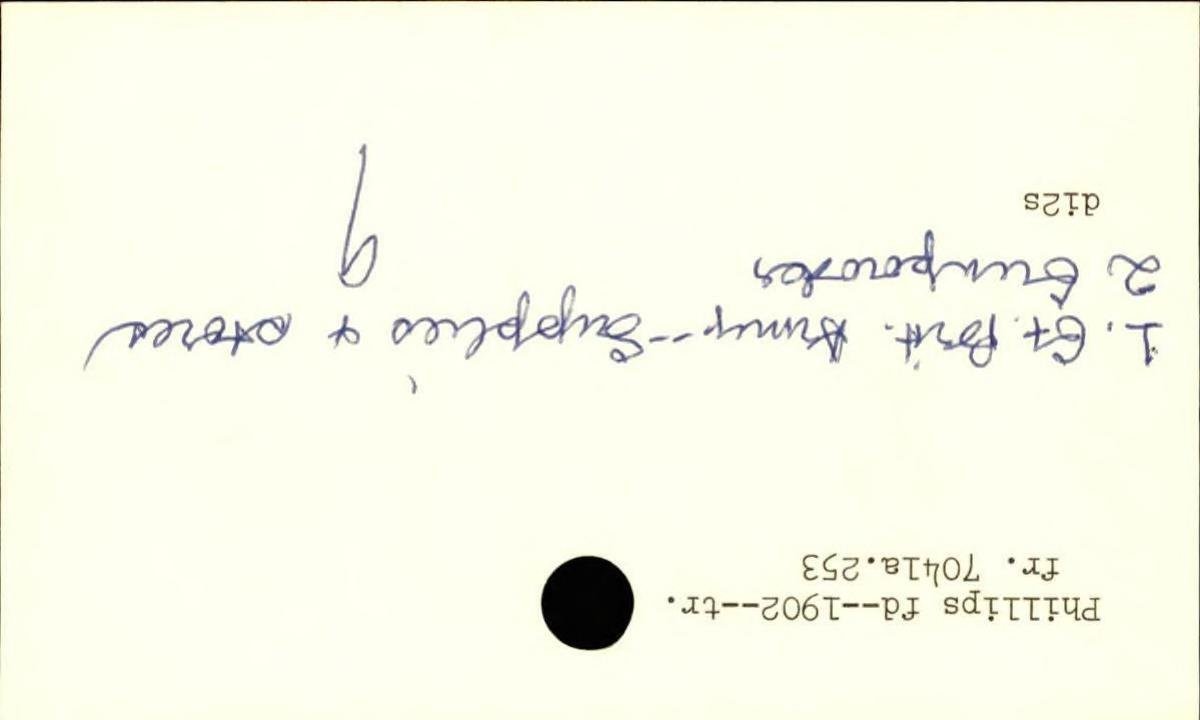 Phillips fd--1902--tr.
fr. 7041a.253
1. Gt. Brit. Army--Supplies & stores
2. Gunpowder
di2s
9